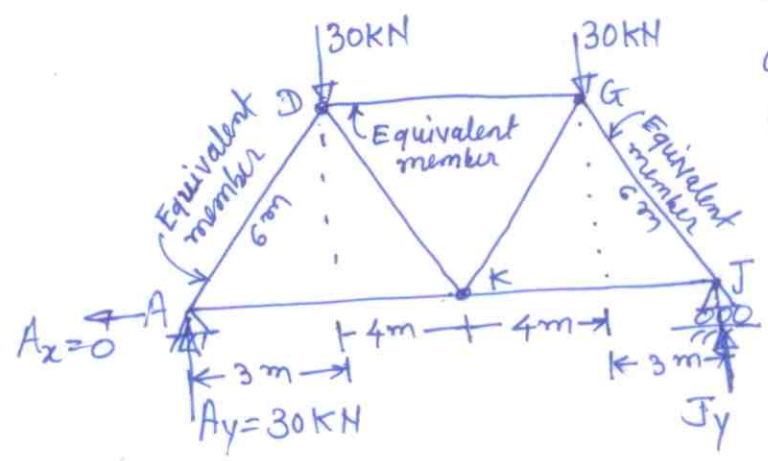 30KN
30KN
D
G
Equivalent
member
Equivalent
member
Equivalent
member
6m
6m
A
K
J
Ax=0
4m
4m
3m
3m
Ay=30KN
Jy